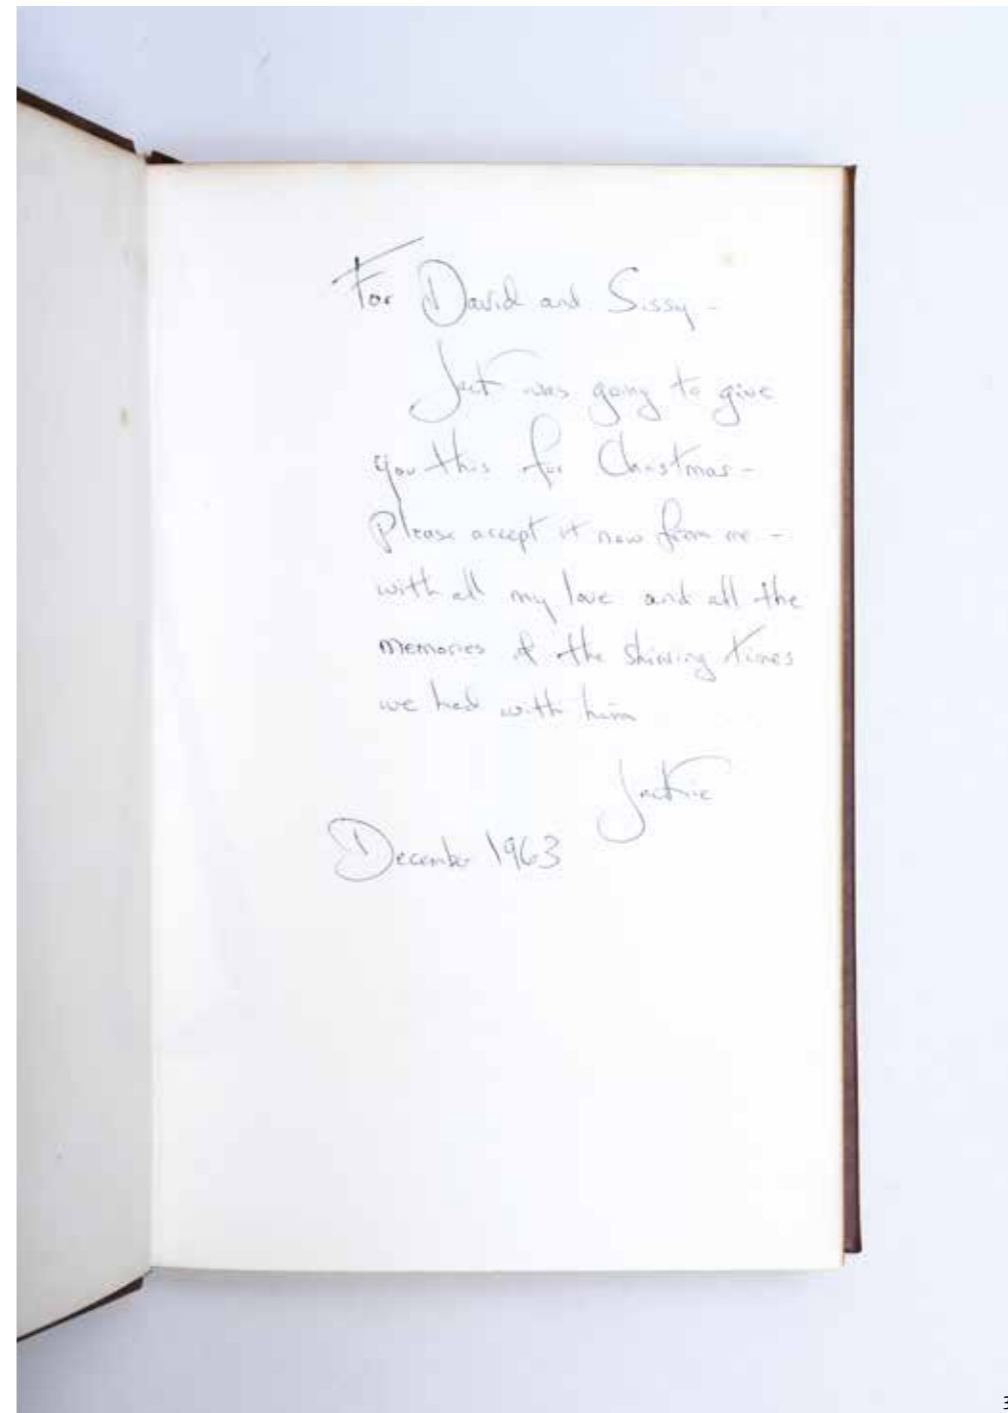 For David and Sissy –
Jack was going to give
you this for Christmas –
Please accept it now from me –
with all my love and all the
memories of the shining times
we had with him
Jackie
December 1963
3